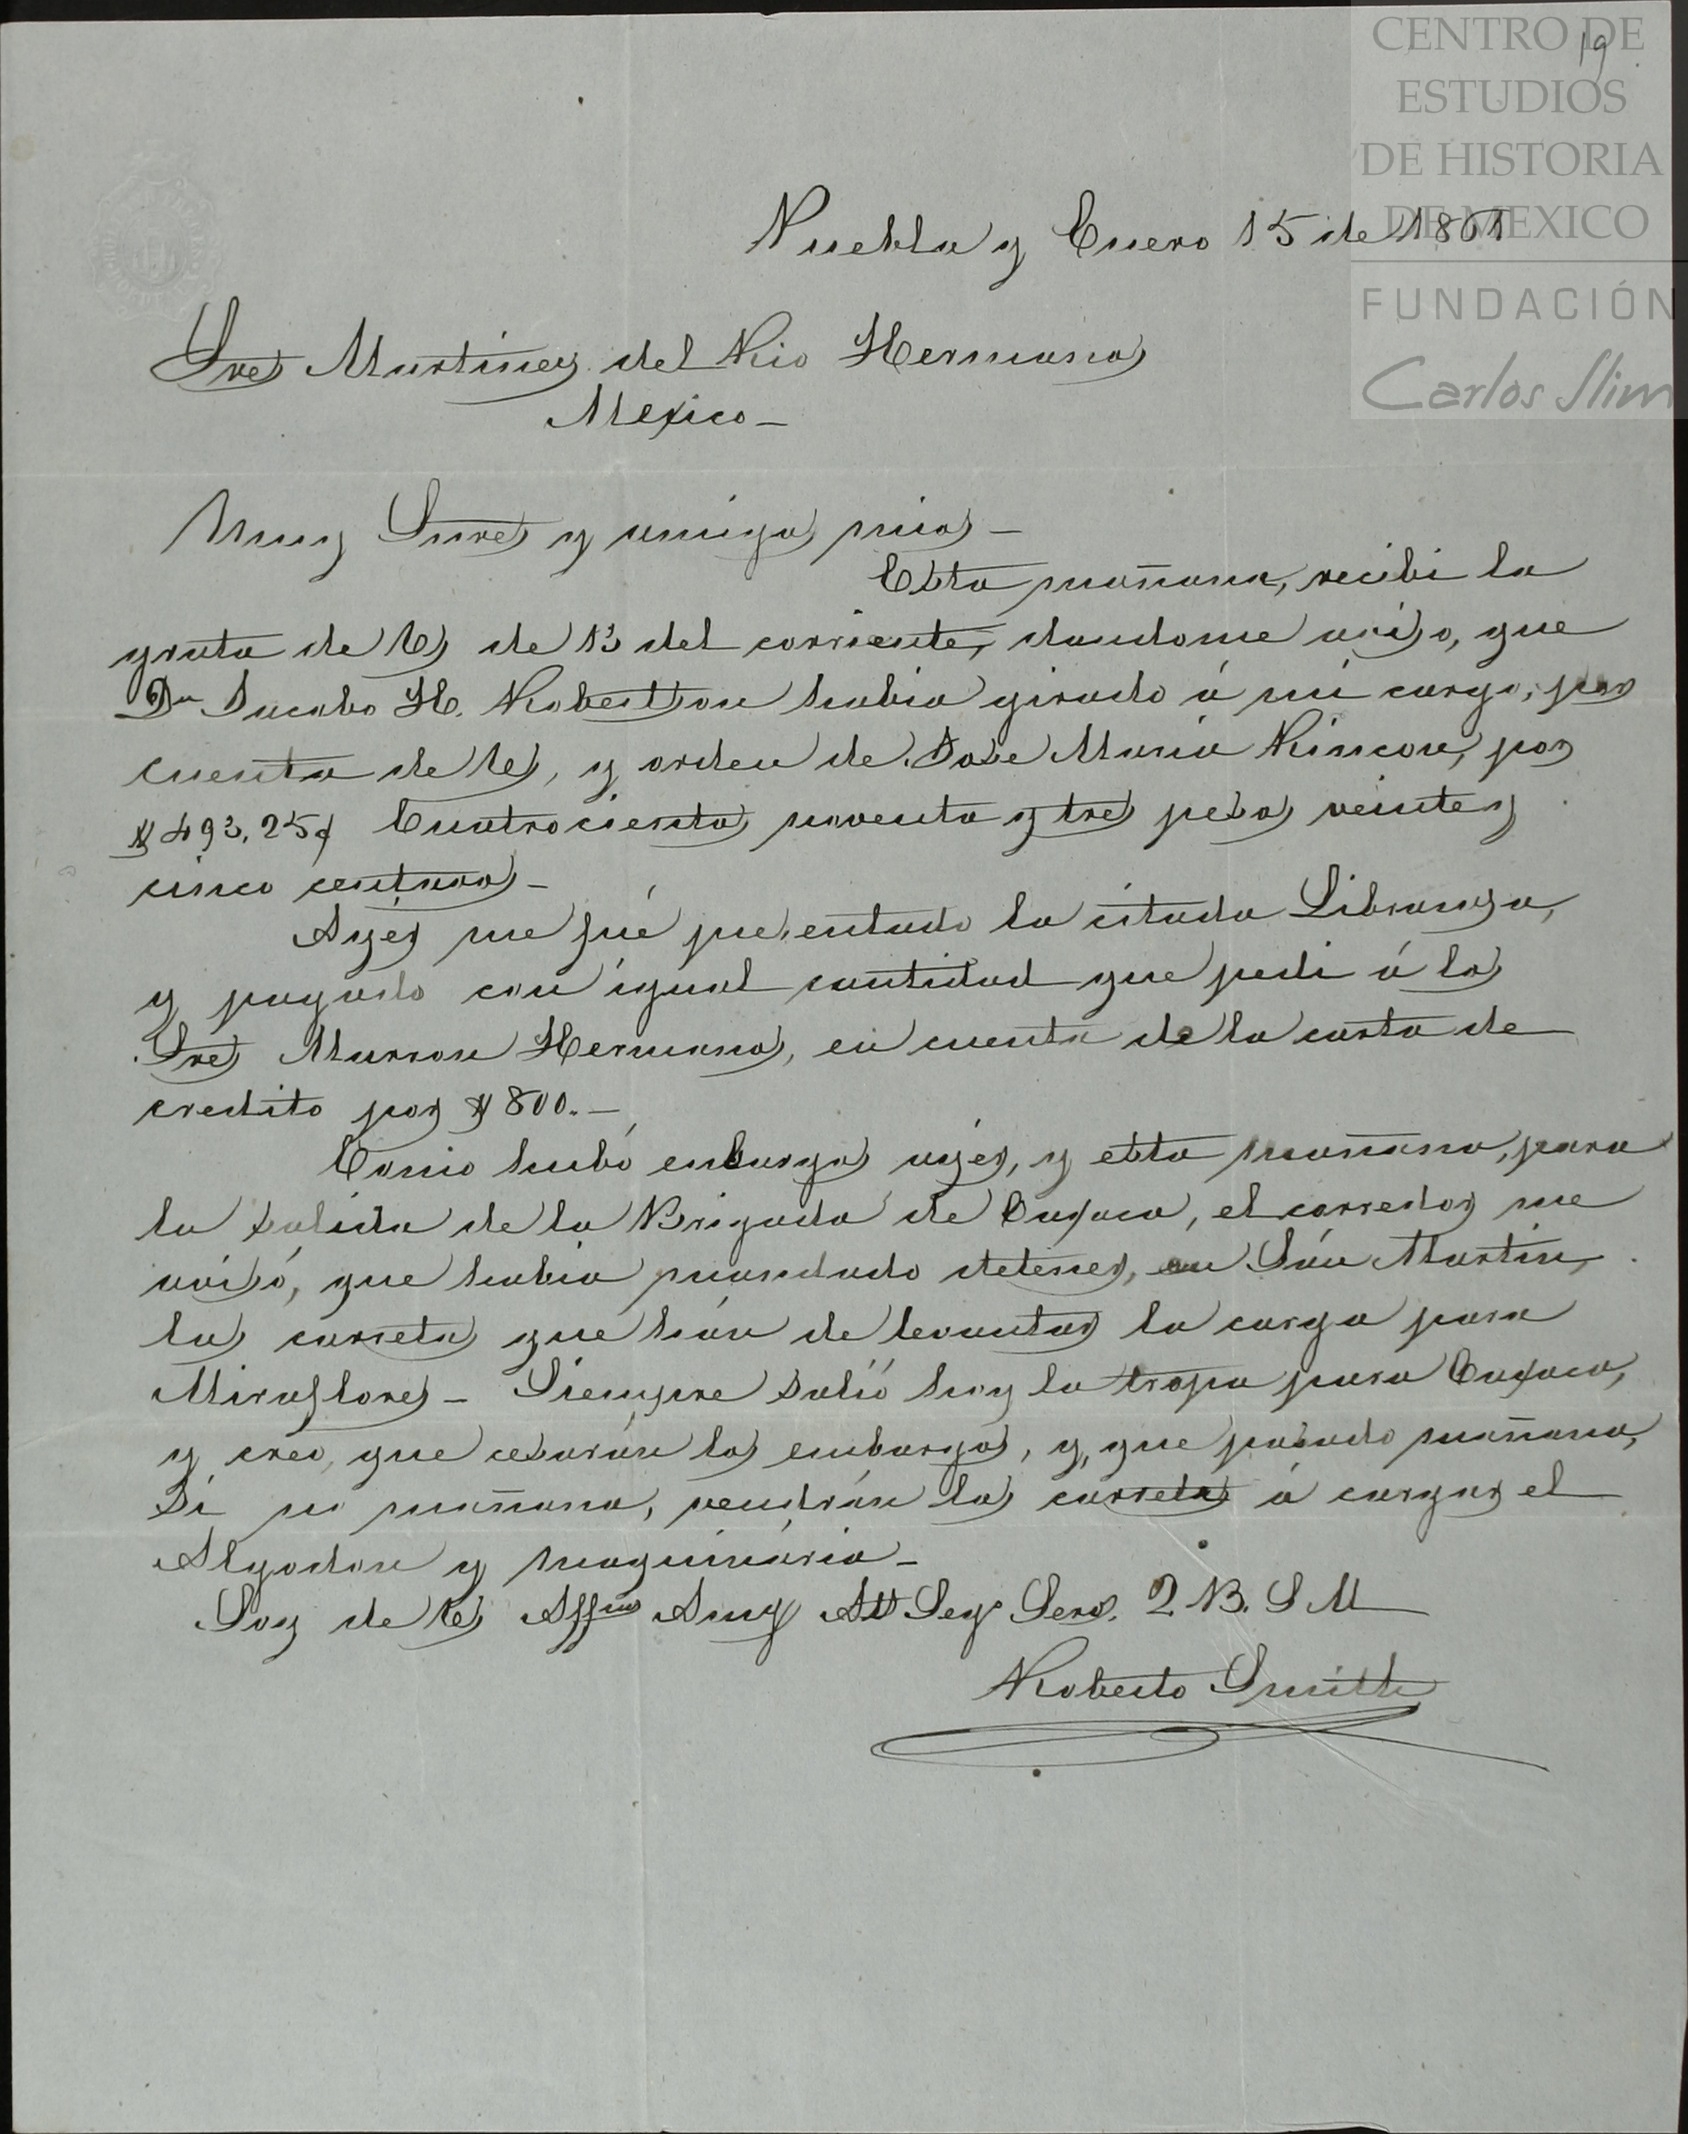 19
CENTRO DE
ESTUDIOS
DE HISTORIA
DE MEXICO
FUNDACIÓN
Carlos Slim
Puebla y Enero 15 de 1861
Sres Martinez del Rio Hermanos
Mexico —
Muy Sures y amigos mios —
Esta mañana, recibi la
grata de Vs de 13 del corriente, dandome aviso, que
Dn Jacobo H. Robertson habia girado á mi cargo, por
cuenta de Vs, y orden de Jose Maria Rincon, por
$493,25¢ Cuatrocientos noventa y tres pesos veinte y
cinco centavos —
Ayér me fué presentado la citada Libranza,
y pagado con igual cantidad que pedi á los
Sres Marron Hermanos, en cuenta de la carta de
credito por $800. —
Como hubó enbargos ayér, y esta mañana, para
la salida de la Brigada de Oaxaca, el corredor me
avisó, que habia mandado detener, en Sán Martin,
las carretas que hán de levantar la carga para
Miraflores — Siempre salió hoy la tropa para Oaxaca,
y creo, que cesarán los embargos, y, que pasado mañana,
Si no mañana, vendrán las carretas á cargar el
Algodon y maquinária —
Soy de Vs Affmo Amgo Atto Segº Servr. Q. B. S. M
Roberto Smith